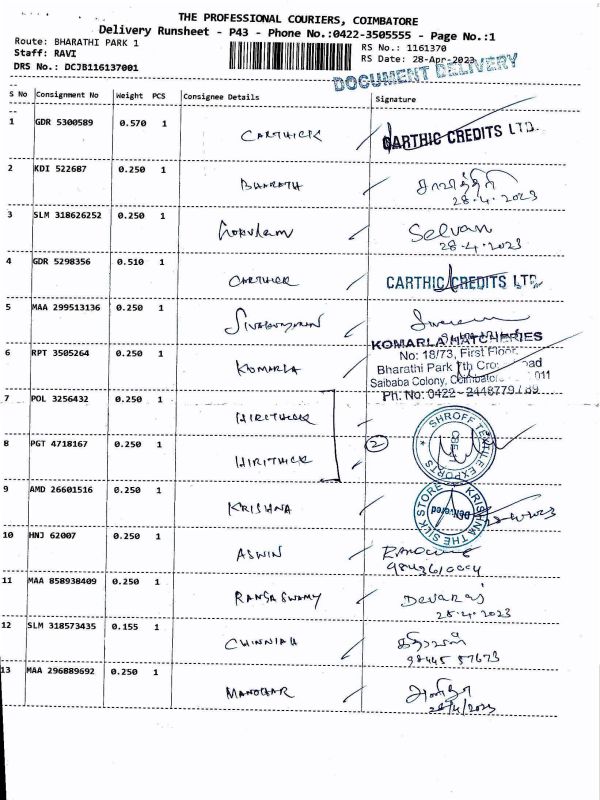 THE PROFESSIONAL COURIERS, COIMBATORE
Delivery Runsheet - P43 - Phone No.:0422-3505555 - Page No.:1
Route: BHARATHI PARK 1
Staff: RAVI
DRS No.: DCJB116137001
RS No.: 1161370
RS Date: 28-Apr-2023
DOCUMENT DELIVERY
S No Consignment No Weight PCS Consignee Details Signature
1 GDR 5300589 0.570 1 CARTHICK CARTHIC CREDITS LTD.
2 KDI 522687 0.250 1 BHARATH சாவித்திரி
28.4.2023
3 SLM 318626252 0.250 1 Gokulam Selvan
28.4.2023
4 GDR 5298356 0.510 1 CARTHICK CARTHIC CREDITS LTD.
5 MAA 299513136 0.250 1
6 RPT 3505264 0.250 1 KOMARLA KOMARLA HATCHERIES
No: 18/73, First Floor,
Bharathi Park 7th Cro oad
Saibaba Colony, Coimbatore 011
Ph. No: 0422 - 2448779 / 89
7 POL 3256432 0.250 1 HIRITHICK
8 PGT 4718167 0.250 1 HIRITHICK 2 SHROFF TEXTILE EXPORTS
CBE-11
9 AMD 26601516 0.250 1 KRISHNA KRISHNA THE SILK STORE
Delivered
10 HNJ 62007 0.250 1 ASWIN
11 MAA 858938409 0.250 1 RANGASWAMY Devaraj
28.4.2023
12 SLM 318573435 0.155 1 CHINNIAH
98445 57673
13 MAA 296889692 0.250 1 MANOHAR
28/4/2023